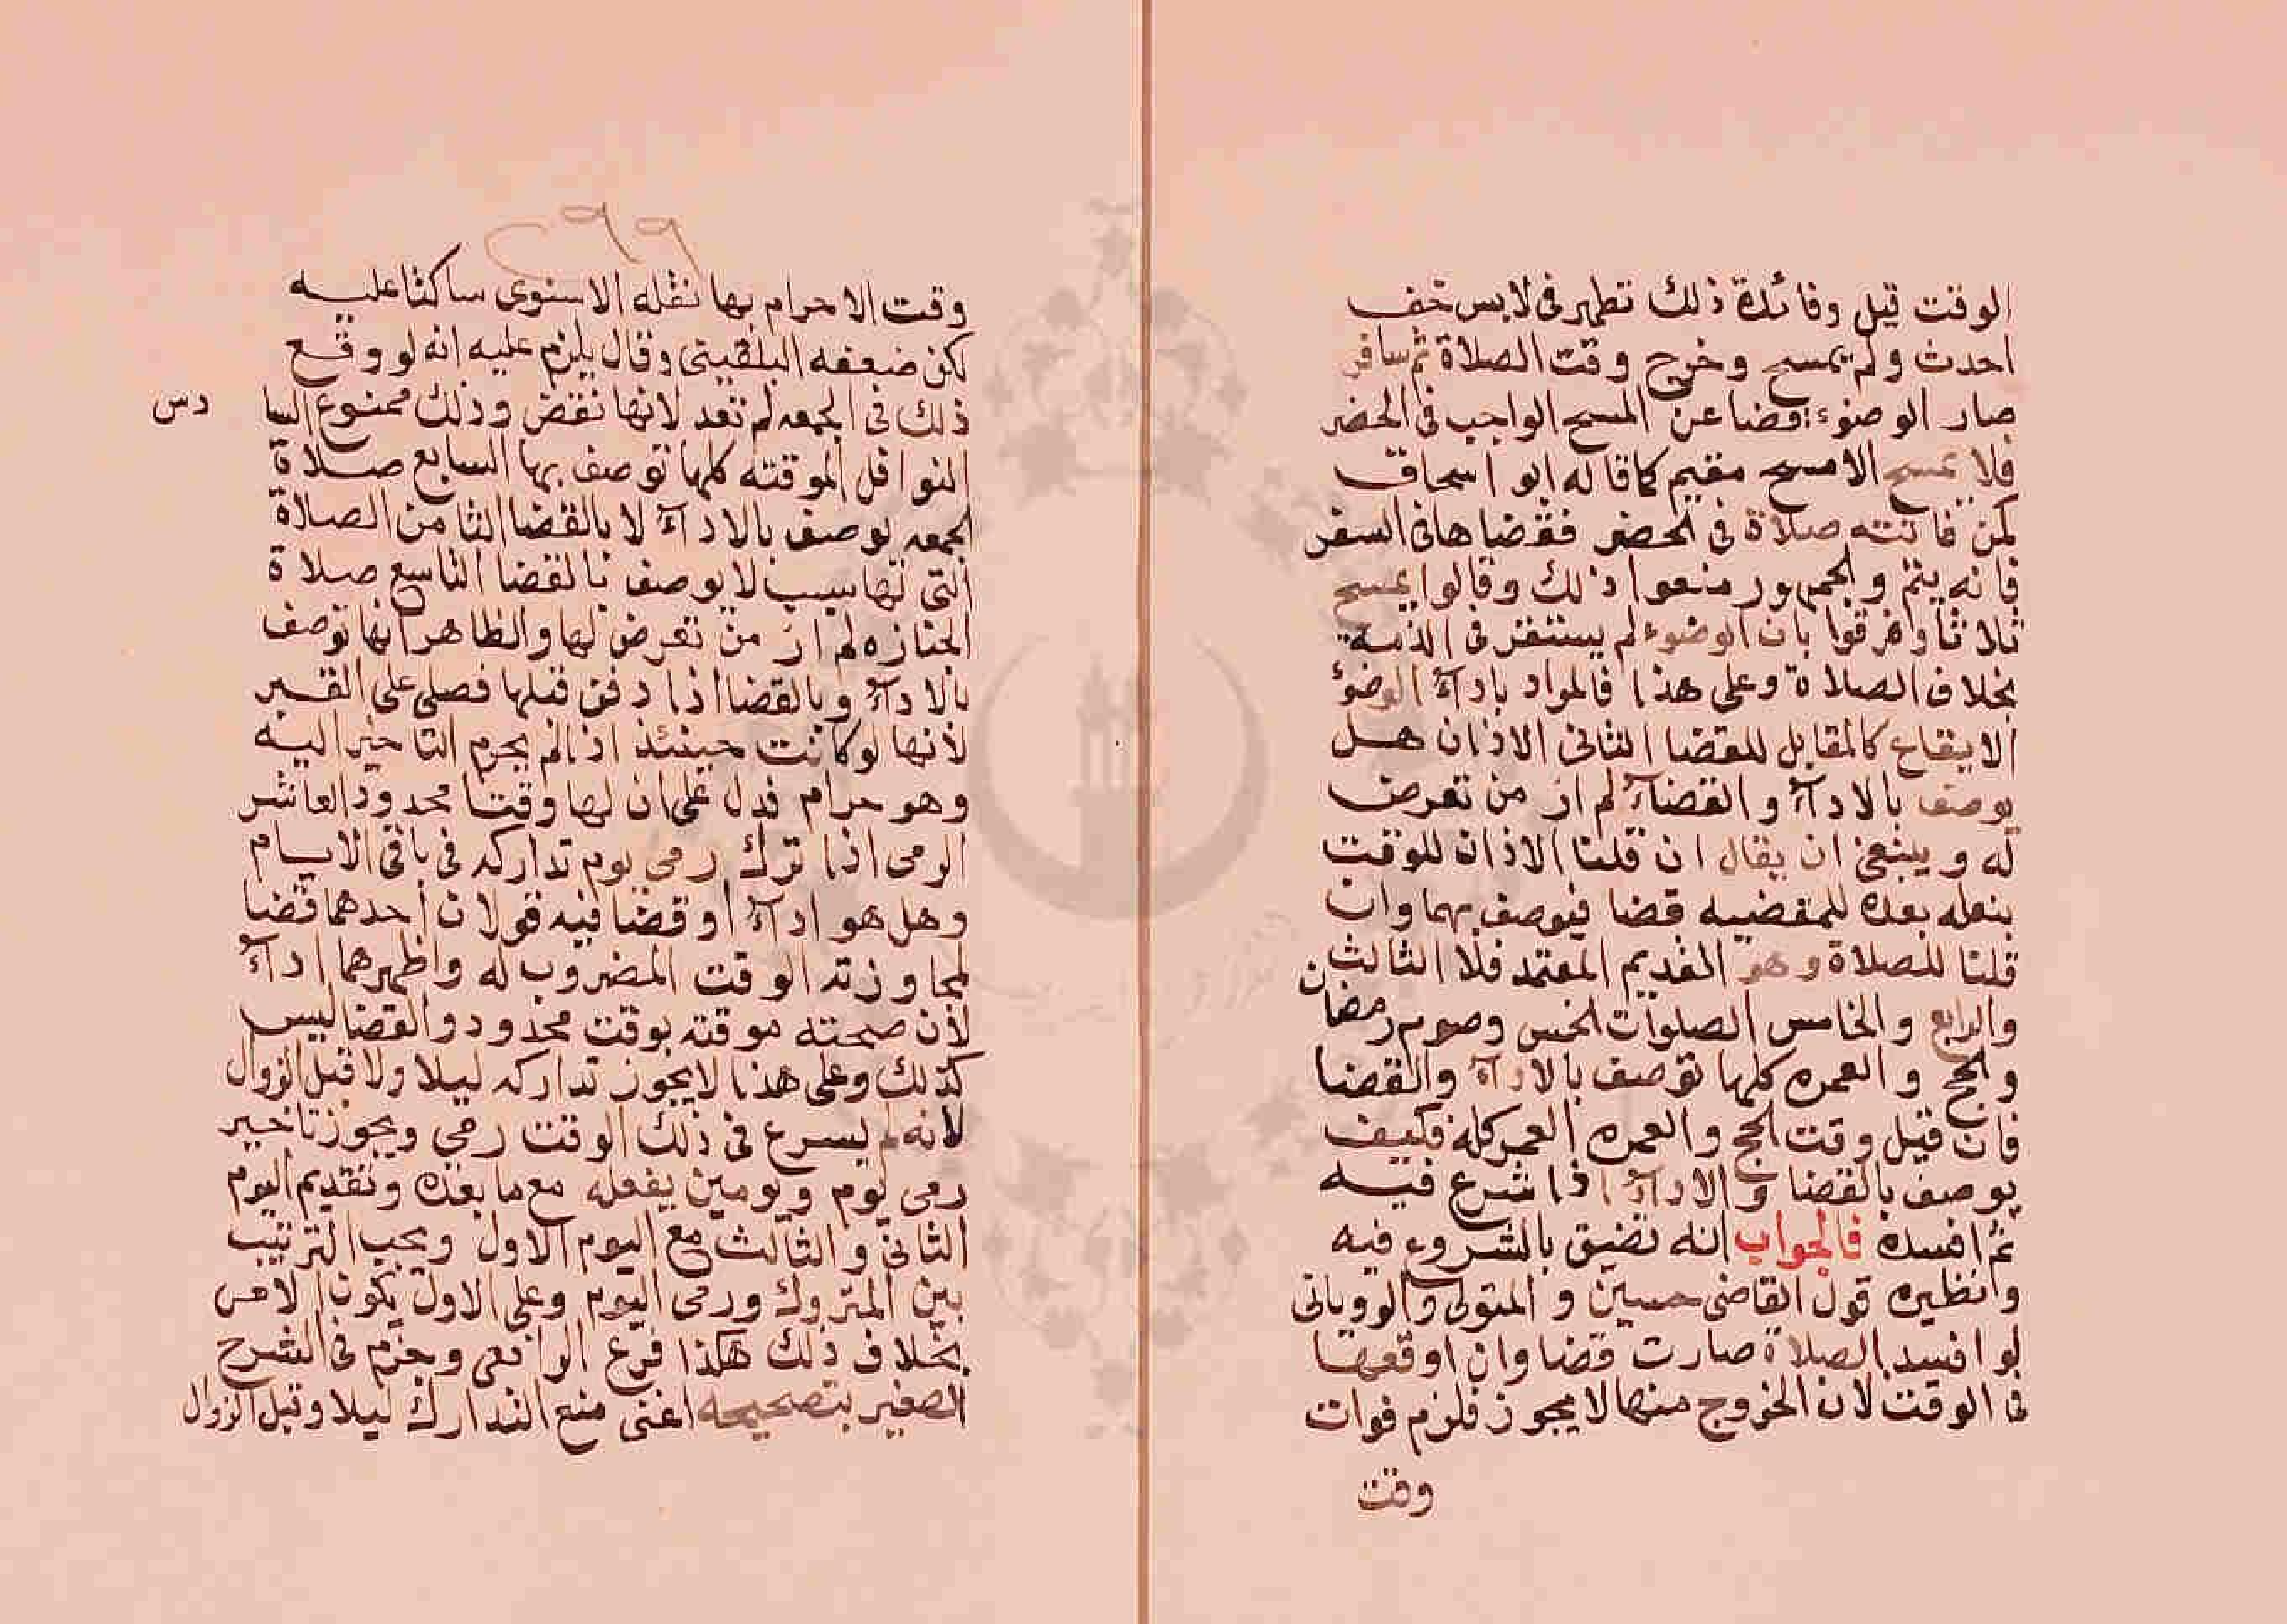 الوقت قيل وفائدة ذلك تظهر فى لابس خف
احدث ولم يمسح وخرج وقت الصلاة ثم سافر
صار الوضوء قضا عن المسح الواجب فى الحضر
فلا يمسح الا مسح مقيم كما قاله ابو اسحاق
كمن فاتته صلاة فى الحضر فقضاها فى السفر
فانه يتم والجمهور منعوا ذلك وقالوا يمسح
ثلاثا وفرقوا بان الوضوء لم يستقر فى الذمة
بخلاف الصلاة وعلى هذا فالمراد بادآء الوضوء
الايقاع كالمقابل للقضا الثانى الاذان هل
يوصف بالادآء والقضآء لم ار من تعرض
له وينبغى ان يقال ان قلنا الاذان للوقت
بفعله بعده للمقضيه قضا فيوصف بهما وان
قلنا للصلاة وهو القديم المعتمد فلا الثالث
والرابع والخامس الصلوات الخمس وصوم رمضان
والحج والعمره كلها توصف بالادآء والقضا
فان قيل وقت الحج والعمره العمر كله فكيف
يوصف بالقضا والادآء اذا شرع فيه
ثم افسده فالجواب انه تضيق بالشروع فيه
ونظيره قول القاضى حسين والمتولى والرويانى
لو افسد الصلاة صارت قضا وان اوقعها
فى الوقت لان الخروج منها لا يجوز فلزم فوات
وقت
٢٩٩
وقت الاحرام بها نقله الاسنوى ساكتا عليه
لكن ضعفه البلقينى وقال يلزم عليه انه لو وقع
ذلك فى الجمعه لم تعد لانها تقض وذلك ممنوع السا دس
النوافل الموقته كلها توصف بها السابع صلاة
الجمعه توصف بالادآء لا بالقضا الثامن الصلاة
التى لها سبب لا توصف بالقضا التاسع صلاة
الجنازه لم ار من تعرض لها والظاهر انها توصف
بالادآء وبالقضا اذا دفن قبلها فصلى على القبر
لانها لو كانت حينئذ ادا لم يحرم التاخير اليه
وهو حرام فدل على ان لها وقتا محدود العاشر
الرمى اذا ترك رمى يوم تداركه فى باقى الايام
وهل هو ادآء او قضا فيه قولان احدهما قضا
لمجاوزته الوقت المضروب له واظهرهما ادآء
لان صحته موقته بوقت محدود والقضا ليس
كذلك وعلى هذا لا يجوز تداركه ليلا ولا قبل الزوال
لانه لم يسرع فى ذلك الوقت رمى ويجوز تاخير
رمى يوم ويومين يفعله مع ما بعده وتقديم اليوم
الثانى والثالث مع اليوم الاول ويجب الترتيب
بين المتروك ورمى اليوم وعلى الاول يكون الامر
بخلاف ذلك هكذا فرع الرافعى وجزم فى الشرح
الصغير بتصحيحه اعنى منع التدارك ليلا وقبل الزوال